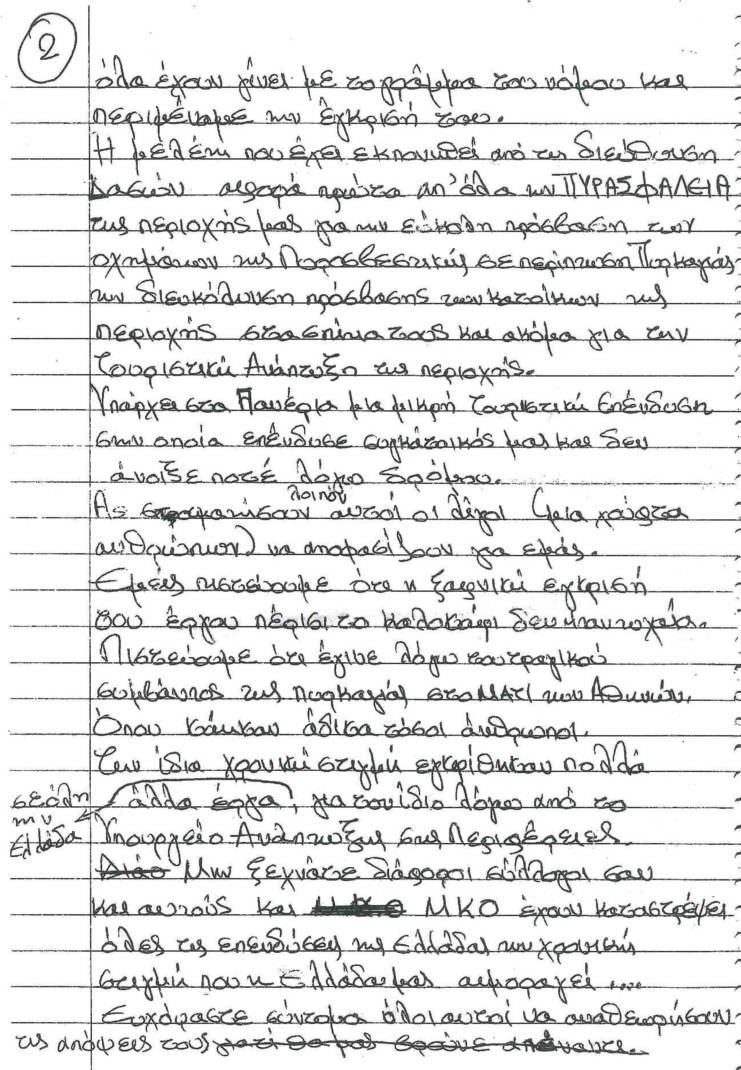 2
όλα έχουν γίνει με το γράμμα του νόμου και
περιμέναμε την έγκρισή του.
Η μελέτη που έχει εκπονηθεί από τις διεύθυνση
Δασών αφορά πρώτα απ' όλα την ΠΥΡΑΣΦΑΛΕΙΑ
της περιοχής μας για την εύκολη πρόσβαση των
οχημάτων της Πυροσβεστικής σε περίπτωση Πυρκαγιάς
την διευκόλυνση πρόσβασης των κατοίκων της
περιοχής στα σπίτια τους και ακόμα για την
Τουριστική Ανάπτυξη της περιοχής.
Υπάρχει στα μια μικρή τουριστική επένδυση
στην οποία επένδυσε συγκάτοικός μας και δεν
άνοιξε ποτέ λόγω δρόμου.
Ας σταματήσουν λοιπόν αυτοί οι λίγοι (μια χούφτα
ανθρώπων) να αποφασίζουν για εμάς.
Εμείς πιστεύουμε ότι η ξαφνική εγκρισή
του έργου πέρισι το καλοκαίρι δεν ήταν τυχαία.
Πιστεύουμε ότι έγινε λόγω του τραγικού
συμβάντος της πυρκαγιάς στο ΜΑΤΙ των Αθηνών.
Όπου κάηκαν άδικα τόσοι άνθρωποι.
Την ίδια χρονική στιγμή εγκρίθηκαν πολλά
σε όλη την Ελλάδα άλλα έργα, για τον ίδιο λόγω από το
Υπουργείο Ανάπτυξης στις Περιφέρειες.
Μην ξεχνάτε διάφοροι σύλλογοι σαν
και αυτούς και ΜΚΟ έχουν καταστρέψει
όλες τις επενδύσεις της Ελλάδας την χρονική
στιγμή που η Ελλάδα μας αιμοραγεί ....
Ευχόμαστε σύντομα όλοι αυτοί να αναθεωρήσουν
τις απόψεις τους γιατί θα μας βρούνε απέναντι.